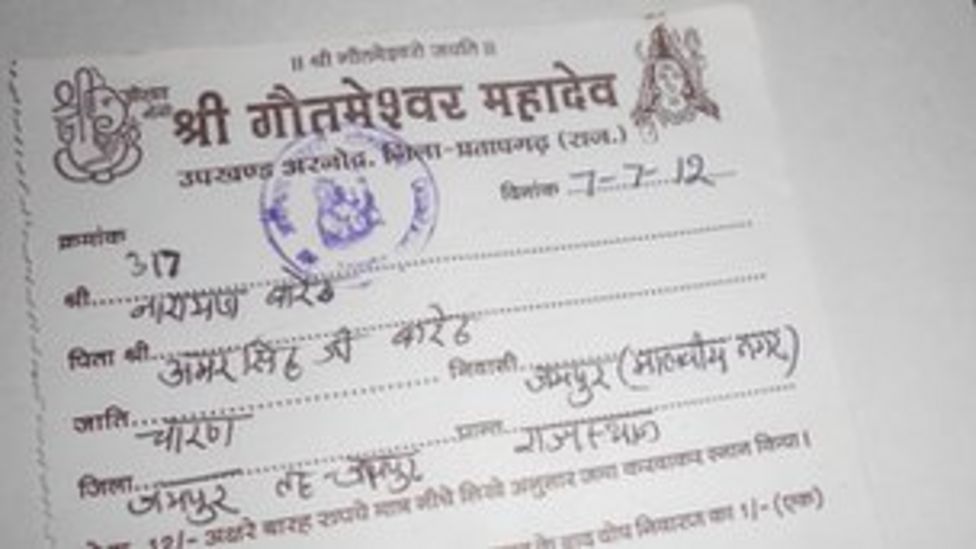 ॥ श्री गौतमेश्वरो जयति ॥
श्री गौतमेश्वर महादेव
उपखण्ड अरनोद, जिला-प्रतापगढ़ (राज.)
दिनांक 7-7-12
क्रमांक
317
श्री नारायण बारेठ
पिता श्री अमर सिंह जी बारेठ
निवासी जयपुर (मालवीय नगर)
जाति चारण प्रान्त राजस्थान
जिला जयपुर तह जयपुर
12/- अक्षरे बारह रुपये मात्र नीचे लिखे अनुसार जमा करवाकर स्नान किया।
के बाद दोष निवारण का 1/- (एक)